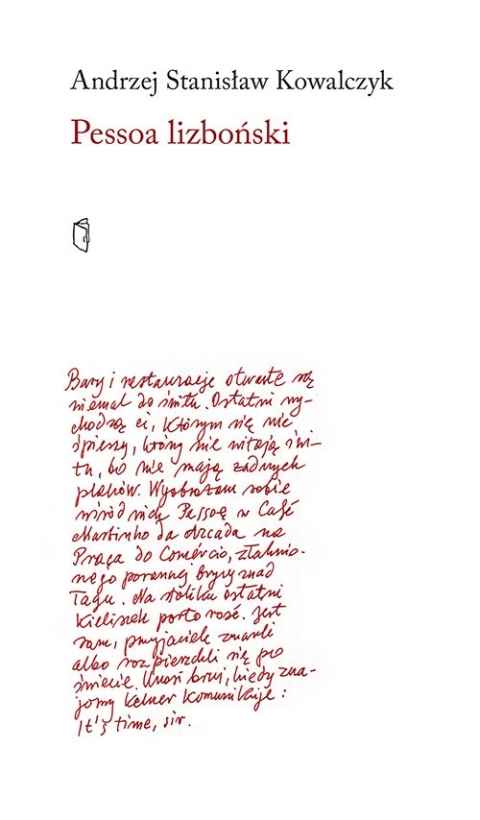 Andrzej Stanisław Kowalczyk
Pessoa lizboński
Bary i restauracje otwarte są
niemal do świtu. Ostatni wy-
chodzą ci, którym się nie
śpieszy, którzy nie witają świ-
tu, bo nie mają żadnych
planów. Wyobrażam sobie
wśród nich Pessoę w Café
Martinho da Arcada na
Praça do Comércio, złaknio-
nego porannej bryzy znad
Tagu. Na stoliku ostatni
kieliszek porto rosé. Jest
sam, przyjaciele zmarli
albo rozpierzchli się po
świecie. Unosi brwi, kiedy zna-
jomy kelner komunikuje:
It's time, sir.